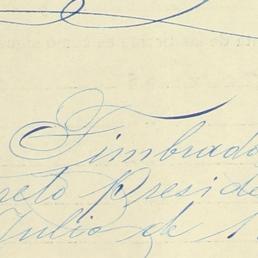 Timbrado
reto Preside
Julio de 1